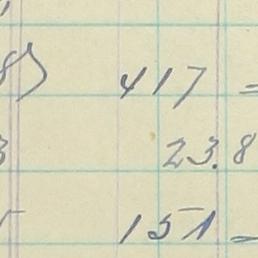 8) 417 =
3 23.8
151 –